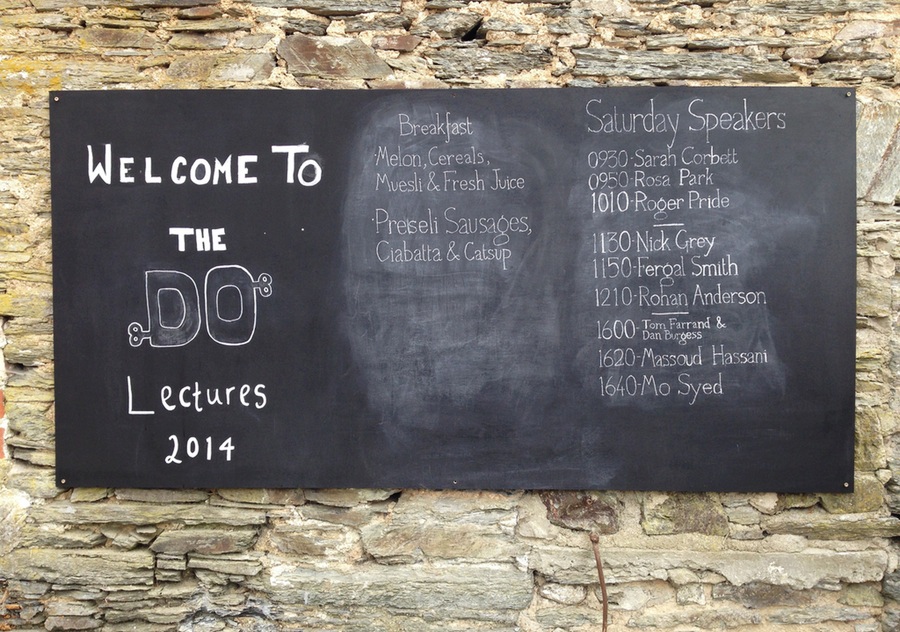 WELCOME TO
THE
DO
Lectures
2014
Breakfast
·Melon, Cereals,
Muesli & Fresh Juice
·Preiseli Sausages,
Ciabatta & Catsup
Saturday Speakers
0930·Sarah Corbett
0950·Rosa Park
1010·Roger Pride
1130·Nick Grey
1150·Fergal Smith
1210·Rohan Anderson
1600·Tom Farrand &
Dan Burgess
1620·Massoud Hassani
1640·Mo Syed